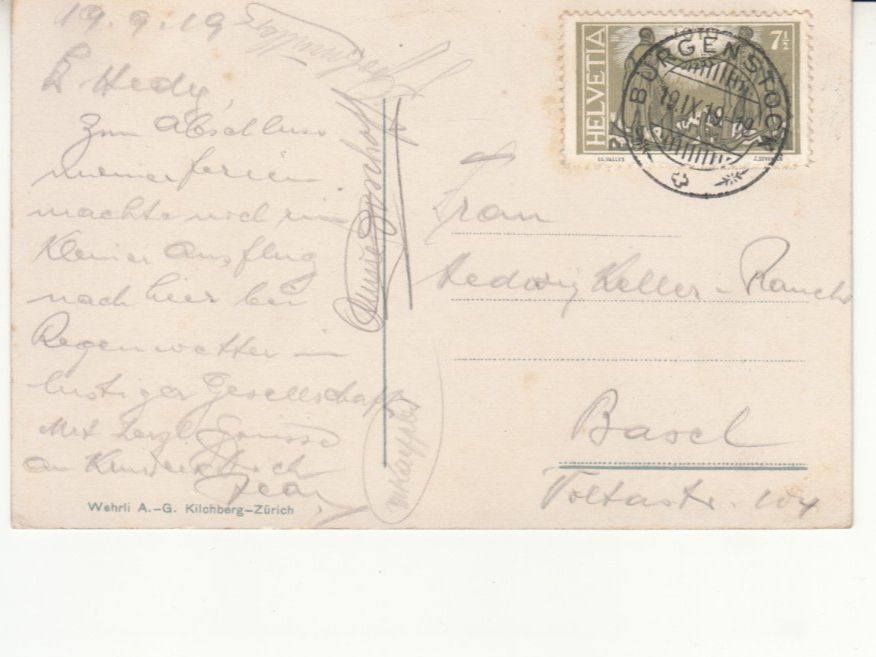 19.9.19
L Hedy
Zum Abschluss
meiner ferien
machte noch ein
kleiner Ausflug
nach hier bei
Regenwetter in
lustiger Gesellschaft
Mit herzl. Grüsse
an Kinder & Dich
Jean
Wehrli A.-G. Kilchberg-Zürich
HELVETIA
1919
7½
BÜRGENSTOCK
19.IX.19-19
Frau
Hedwig Keller-Rauch
Basel
Voltastr. 104